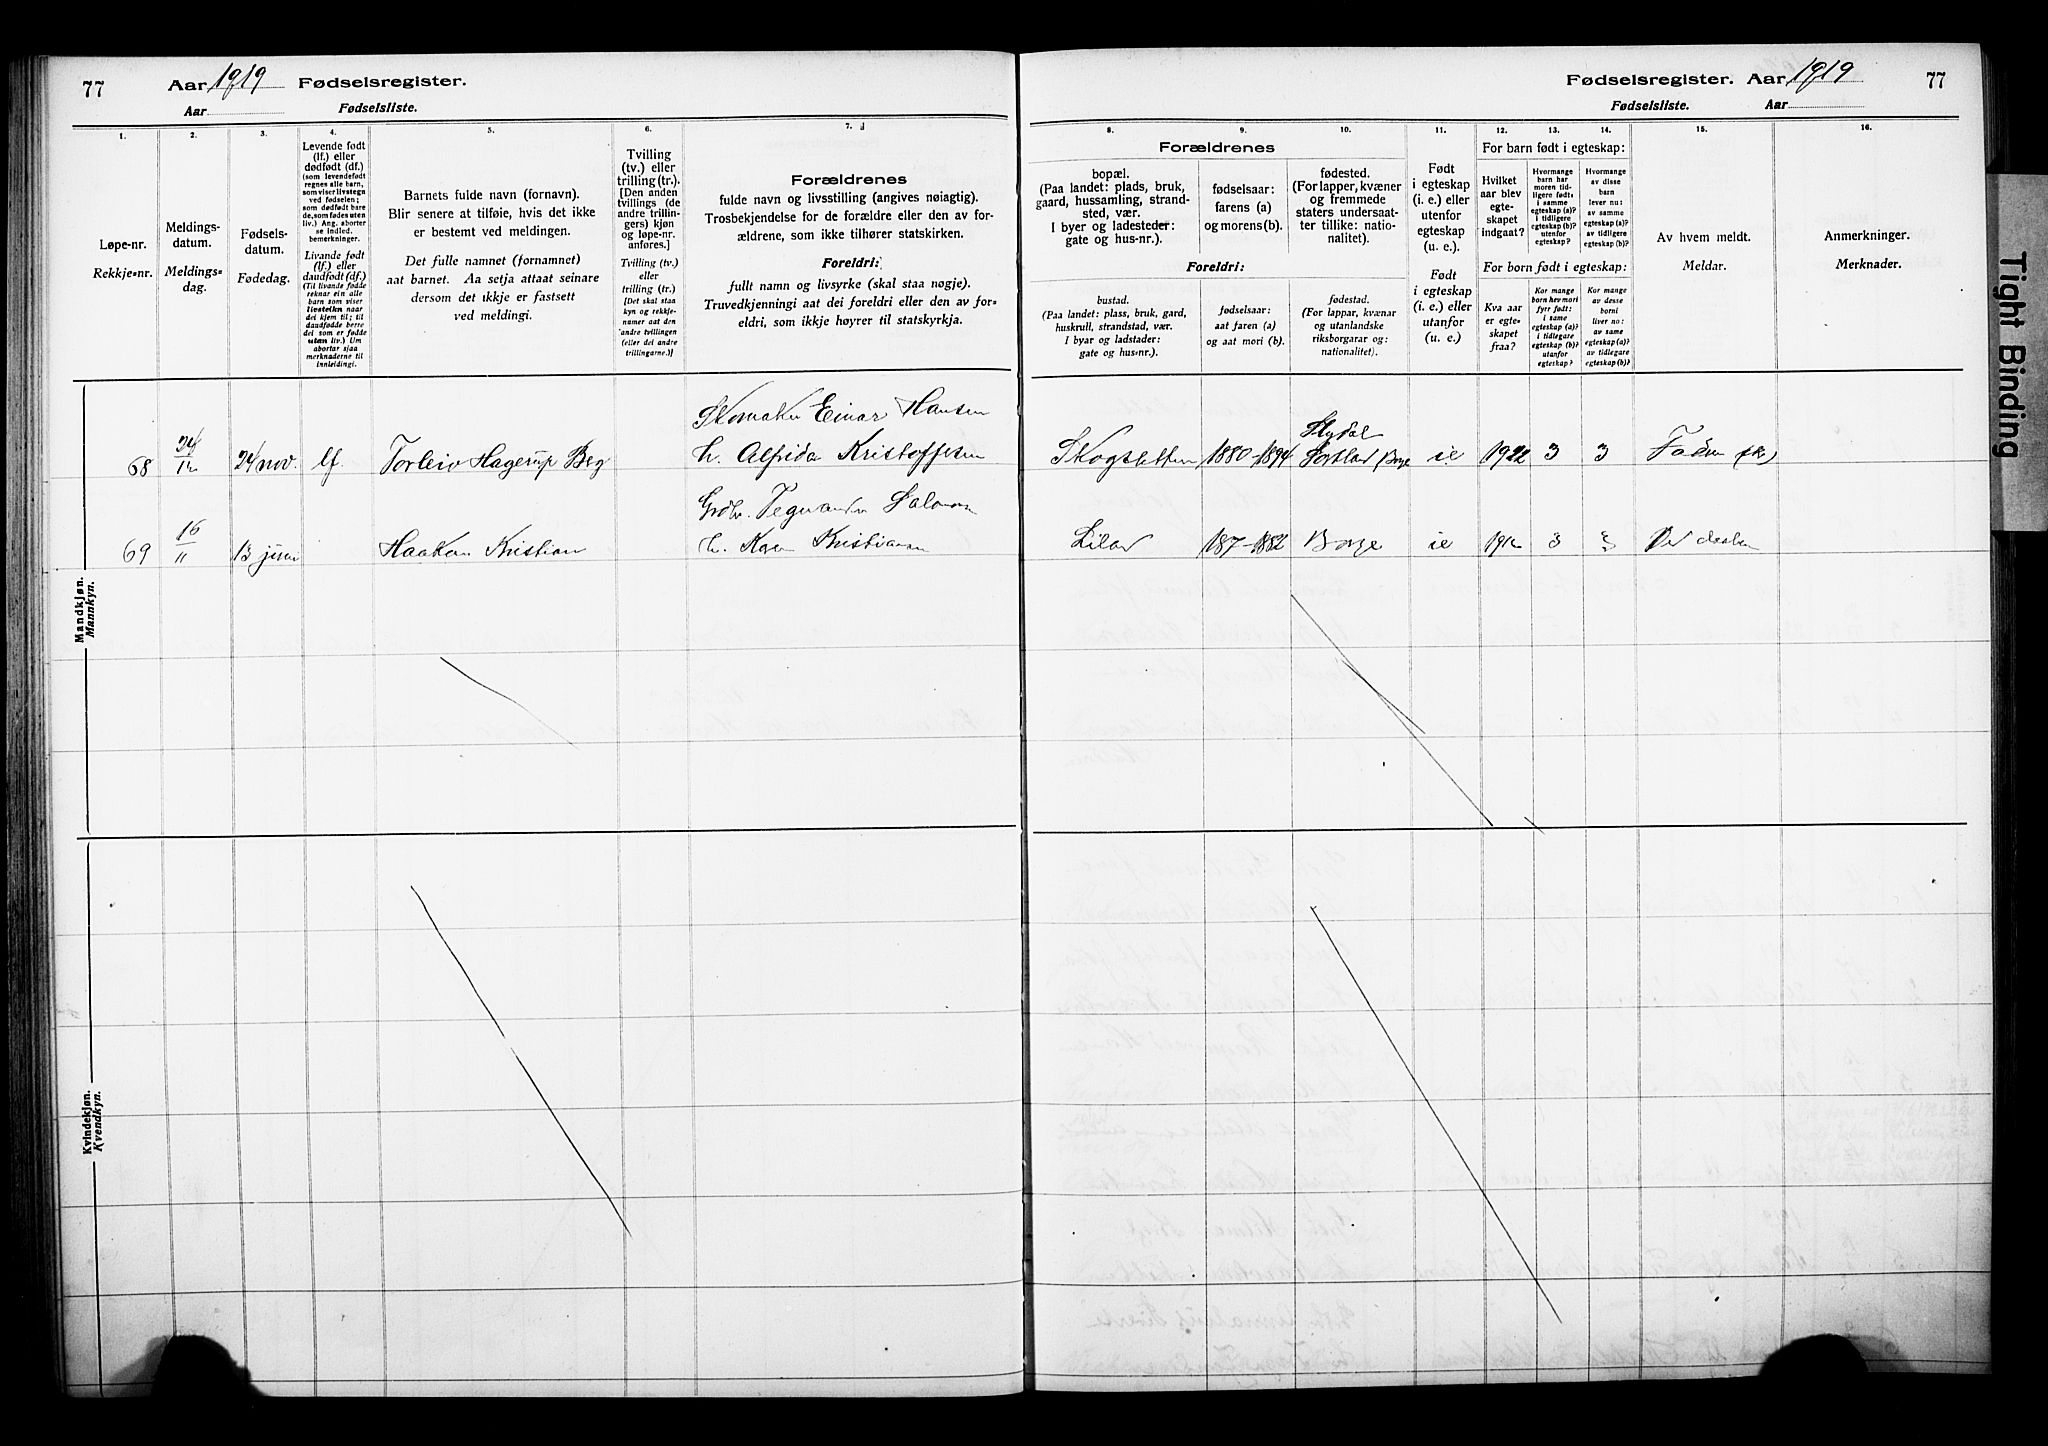 77 Aar 1919 Fødselsregister.
Aar Fødselsliste.
1. 2. 3. 4. 5. 6. 7.
Løpe-nr.
Rekkje-nr.
Meldings-
datum.
Meldings-
dag.
Fødsels-
datum.
Fødedag.
Levende født
(lf.) eller
dødfødt (df.)
(som levendefødt
regnes alle barn,
som viser livstegn
ved fødselen;
som dødfødt bare
de, som fødes uten
liv.) Ang. aborter
se indled.
bemerkninger.
Livande født
(lf.) eller
daudfødt (df.)
(Til livande fødde
reknar ein alle
barn som viser
livsteikn naar
dei kjem til; til
daudfødde berre
dei som er fødde
utan liv.) Um
abortar sjaa
merknaderne til
innleidingi.
Barnets fulde navn (fornavn).
Blir senere at tilføie, hvis det ikke
er bestemt ved meldingen.
Det fulle namnet (fornamnet)
aat barnet. Aa setja attaat seinare
dersom det ikkje er fastsett
ved meldingi.
Tvilling
(tv.) eller
trilling (tr.).
[Den anden
tvillings (de
andre trillin-
gers) kjøn
og løpe-nr.
anføres.]
Tvilling (tv.)
eller
trilling (tr.)
[Det skal staa
kyn og rekkje-
numer aat den
andre tvillingen
(eller dei andre
trillingarne.)]
Forældrenes
fulde navn og livsstilling (angives nøiagtig).
Trosbekjendelse for de forældre eller den av for-
ældrene, som ikke tilhører statskirken.
Foreldri:
fullt namn og livsyrke (skal staa nøgje).
Truvedkjenningi aat dei foreldri eller den av for-
eldri, som ikkje høyrer til statskyrkja.
Mandkjøn.
Mannkyn.
Einar Hansen
68 24 nov. lf. Torleiv Hagerup Berg h. Alfrida Kristoffersen
69 16/11 13 juni Haakon Kristian h. Karen Kristiansen
Kvindekjøn.
Kvendkyn.
Fødselsregister. Aar 1919 77
Fødselsliste. Aar
8. 9. 10. 11. 12. 13. 14. 15. 16.
Forældrenes
bopæl.
(Paa landet: plads, bruk,
gaard, hussamling, strand-
sted, vær.
I byer og ladesteder:
gate og hus-nr.).
fødselsaar:
farens (a)
og morens (b).
fødested.
(For lapper, kvæner
og fremmede
staters undersaat-
ter tillike: natio-
nalitet).
Foreldri:
bustad.
(Paa landet: plass, bruk, gard,
huskrull, strandstad, vær.
I byar og ladstader:
gate og hus-nr.).
fødselsaar:
aat faren (a)
og aat mori (b).
fødestad.
(For lappar, kvænar
og utanlandske
riksborgarar og:
nationalitet).
Født
i egteskap
(i. e.) eller
utenfor
egteskap
(u. e.).
Født
i egteskap
(i. e.) eller
utanfor
(u. e.)
For barn født i egteskap:
Hvilket
aar blev
egte-
skapet
indgaat?
Hvormange
barn har
moren tid-
ligere født:
i samme
egteskap (a)?
i tidligere
egteskap (b)?
utenfor
egteskap?
Hvormange
av disse
barn
lever nu:
av samme
egteskap (a)?
av tidligere
egteskap (b)?
For born født i egteskap:
Kva aar
er egte-
skapet
fraa?
Kor mange
born hev mori
fyrr født:
i same
egteskap (a)?
i tidlegare
egteskap (b)?
utanfor
egteskap?
Kor mange
av desse
borni
liver no:
av same
egteskap (a)?
av tidlegare
egteskap (b)?
Av hvem meldt.
Meldar.
Anmerkninger.
Merknader.
1880-1894 ie 3 3
Borge ie 3 3
Tight Binding